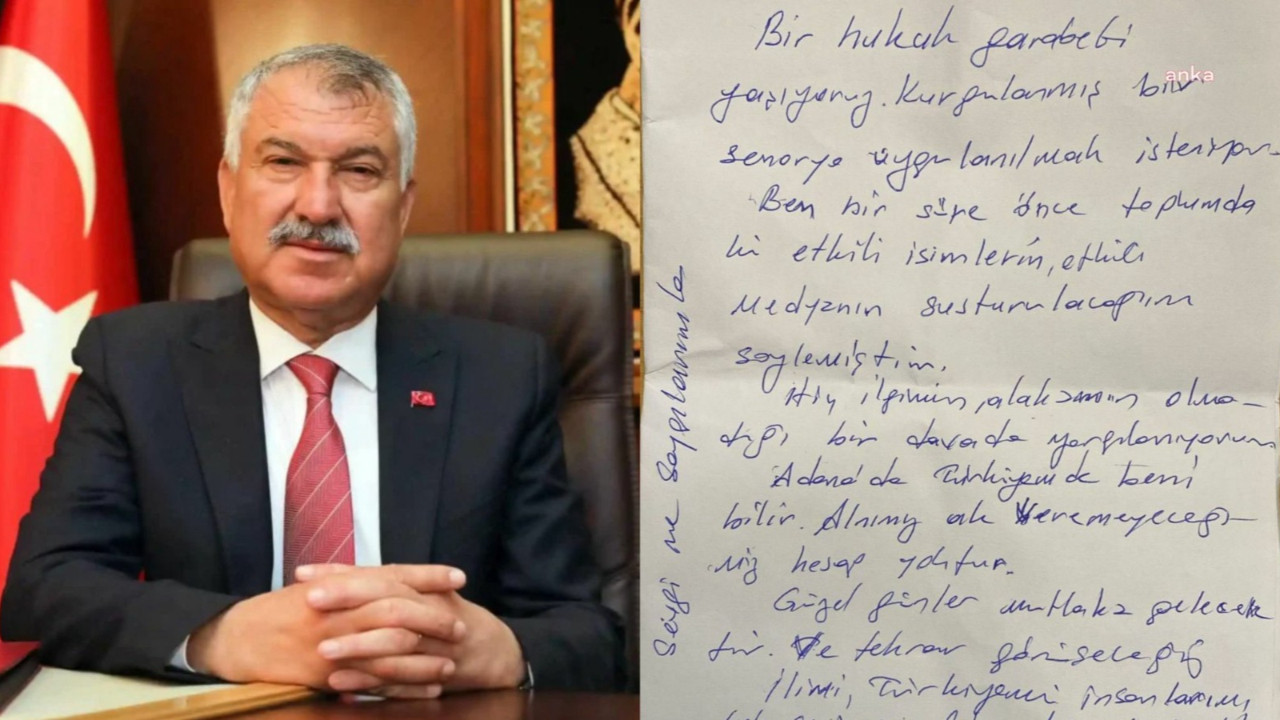 Bir hukuk garabeti
anka
yaşıyoruz. Kurgulanmış bir
senaryo uygulanılmak isteniyor.
Ben bir süre önce toplumda
ki etkili isimlerin, etkili
medyanın susturulacağını
söylemiştim.
Hiç ilgimin, alakamın olma-
dığı bir davada yargılanıyorum
Adana'da Türkiyemde beni
bilir. Alnımız ak veremeyeceği-
miz hesap yoktur.
Güzel günler mutlaka gelecek
tir. Ve tekrar görüşeceğiz
İlimi, Türkiyemi insanlarımı,
Sevgi ve Saygılarımla